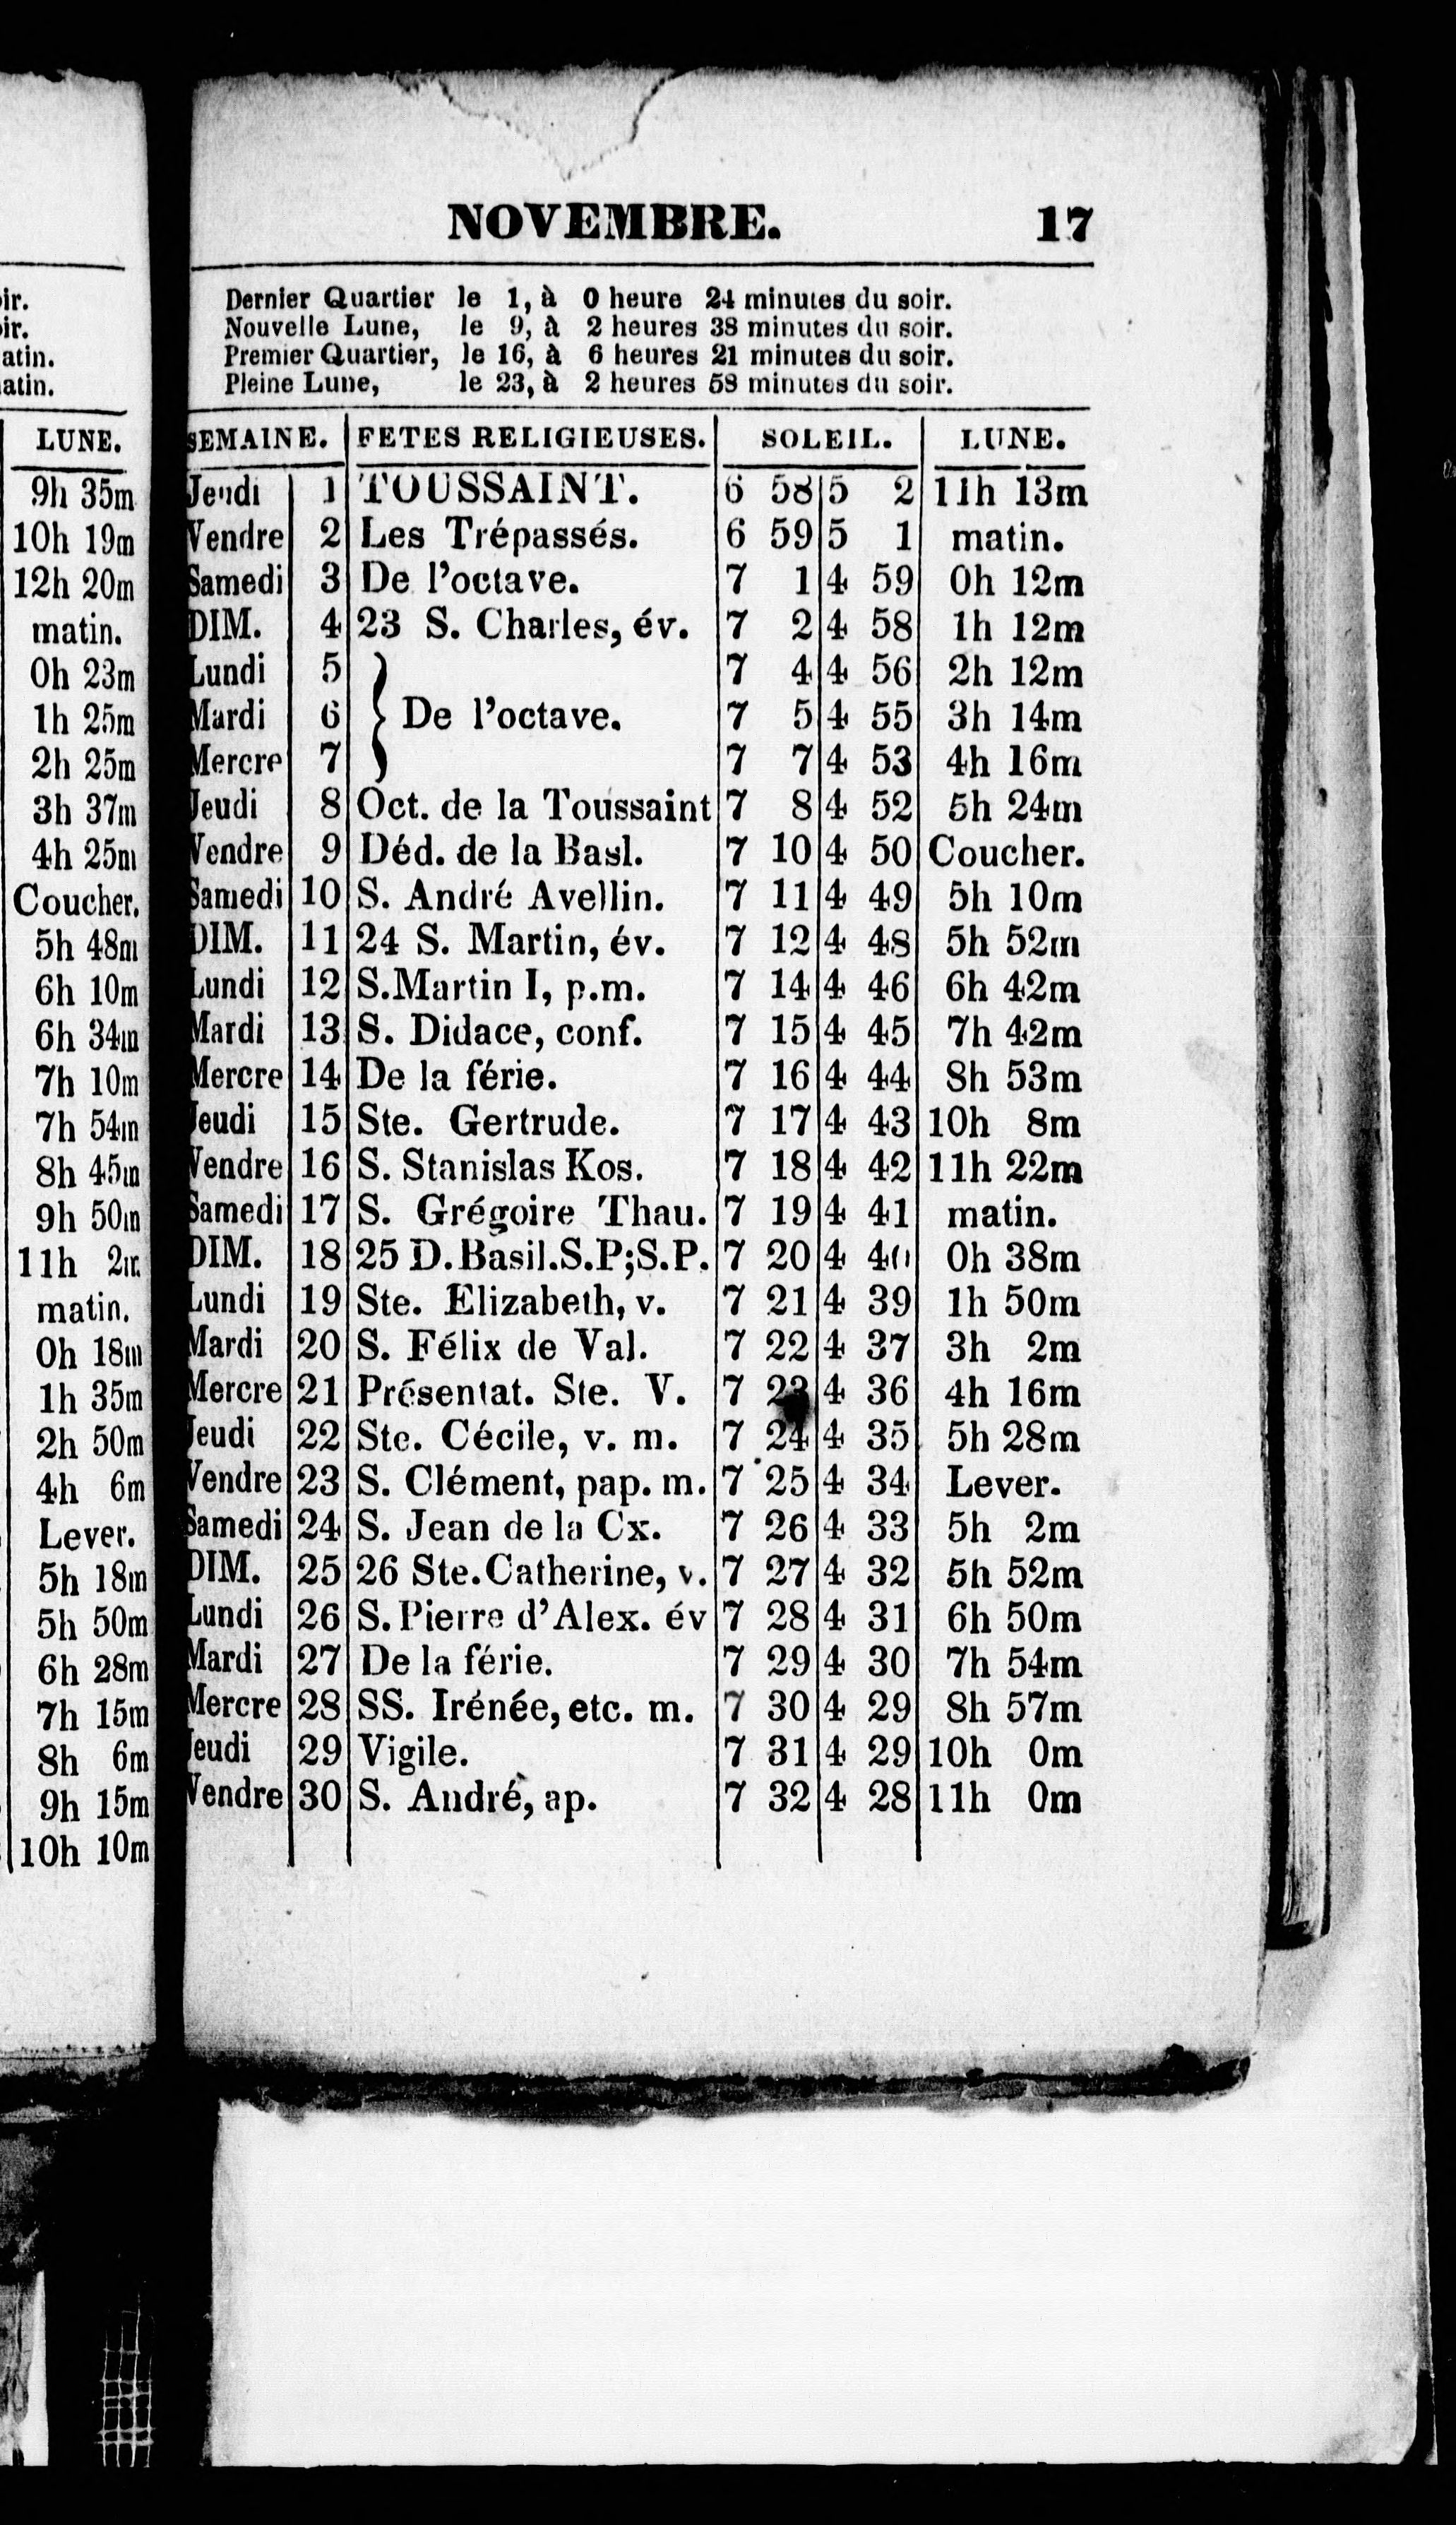 ir.
ir.
atin.
atin.
LUNE.
9h 35m
10h 19m
12h 20m
matin.
0h 23m
1h 25m
2h 25m
3h 37m
4h 25m
Coucher.
5h 48m
6h 10m
6h 34m
7h 10m
7h 54m
8h 45m
9h 50m
11h 2m
matin.
0h 18m
1h 35m
2h 50m
4h 6m
Lever.
5h 18m
5h 50m
6h 28m
7h 15m
8h 6m
9h 15m
10h 10m
NOVEMBRE. 17
Dernier Quartier le 1, à 0 heure 24 minutes du soir.
Nouvelle Lune, le 9, à 2 heures 38 minutes du soir.
Premier Quartier, le 16, à 6 heures 21 minutes du soir.
Pleine Lune, le 23, à 2 heures 58 minutes du soir.
SEMAINE. FETES RELIGIEUSES. SOLEIL. LUNE.
Jeudi 1 TOUSSAINT. 6 58 5 2 11h 13m
Vendre 2 Les Trépassés. 6 59 5 1 matin.
Samedi 3 De l'octave. 7 1 4 59 0h 12m
DIM. 4 23 S. Charles, év. 7 2 4 58 1h 12m
Lundi 5 7 4 4 56 2h 12m
Mardi 6 } De l'octave. 7 5 4 55 3h 14m
Mercre 7 7 7 4 53 4h 16m
Jeudi 8 Oct. de la Toussaint 7 8 4 52 5h 24m
Vendre 9 Déd. de la Basl. 7 10 4 50 Coucher.
Samedi 10 S. André Avellin. 7 11 4 49 5h 10m
DIM. 11 24 S. Martin, év. 7 12 4 48 5h 52m
Lundi 12 S.Martin I, p.m. 7 14 4 46 6h 42m
Mardi 13 S. Didace, conf. 7 15 4 45 7h 42m
Mercre 14 De la férie. 7 16 4 44 8h 53m
Jeudi 15 Ste. Gertrude. 7 17 4 43 10h 8m
Vendre 16 S. Stanislas Kos. 7 18 4 42 11h 22m
Samedi 17 S. Grégoire Thau. 7 19 4 41 matin.
DIM. 18 25 D.Basil.S.P;S.P. 7 20 4 40 0h 38m
Lundi 19 Ste. Elizabeth, v. 7 21 4 39 1h 50m
Mardi 20 S. Félix de Val. 7 22 4 37 3h 2m
Mercre 21 Présentat. Ste. V. 7 23 4 36 4h 16m
Jeudi 22 Ste. Cécile, v. m. 7 24 4 35 5h 28m
Vendre 23 S. Clément, pap. m. 7 25 4 34 Lever.
Samedi 24 S. Jean de la Cx. 7 26 4 33 5h 2m
DIM. 25 26 Ste.Catherine, v. 7 27 4 32 5h 52m
Lundi 26 S. Pierre d'Alex. év 7 28 4 31 6h 50m
Mardi 27 De la férie. 7 29 4 30 7h 54m
Mercre 28 SS. Irénée, etc. m. 7 30 4 29 8h 57m
Jeudi 29 Vigile. 7 31 4 29 10h 0m
Vendre 30 S. André, ap. 7 32 4 28 11h 0m